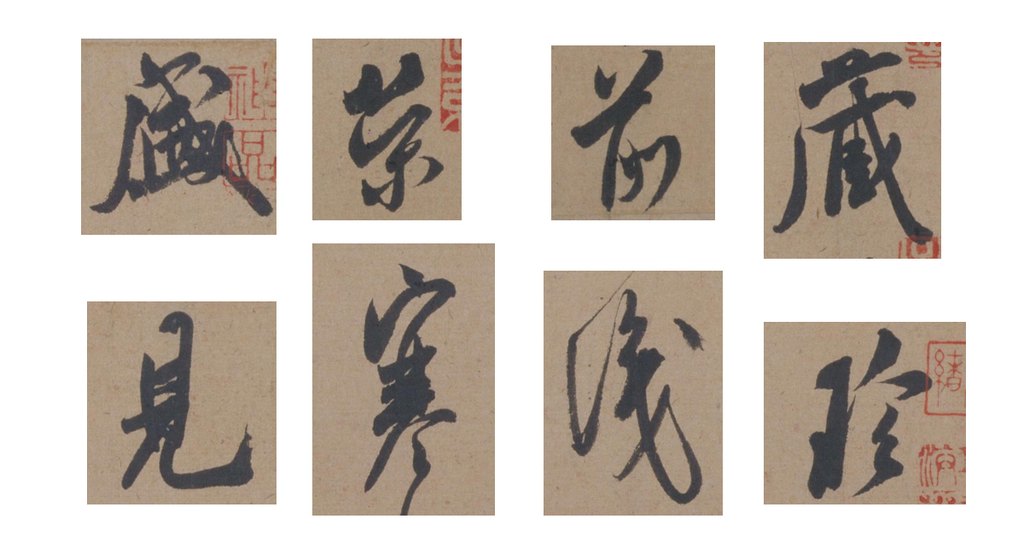 盛 崇 前 藏
見 寒 珍